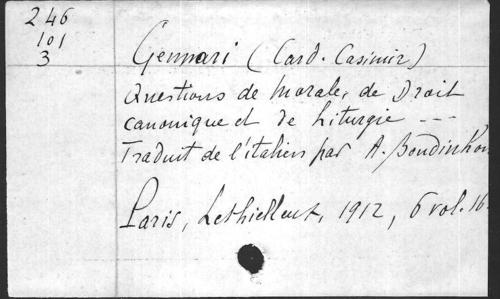 246
101
3
Gennari (Card. Casimir)
Questions de Morale, de Droit
canonique et de Liturgie ---
Traduit de l'italien par A. Boudinhon
Paris, Lethielleux, 1912, 6 vol. 16